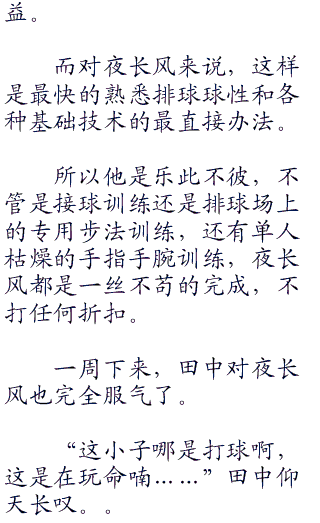 益。
而对夜长风来说，这样
是最快的熟悉排球球性和各
种基础技术的最直接办法。
所以他是乐此不彼，不
管是接球训练还是排球场上
的专用步法训练，还有单人
枯燥的手指手腕训练，夜长
风都是一丝不苟的完成，不
打任何折扣。
一周下来，田中对夜长
风也完全服气了。
“这小子哪是打球啊，
这是在玩命喃……”田中仰
天长叹。。